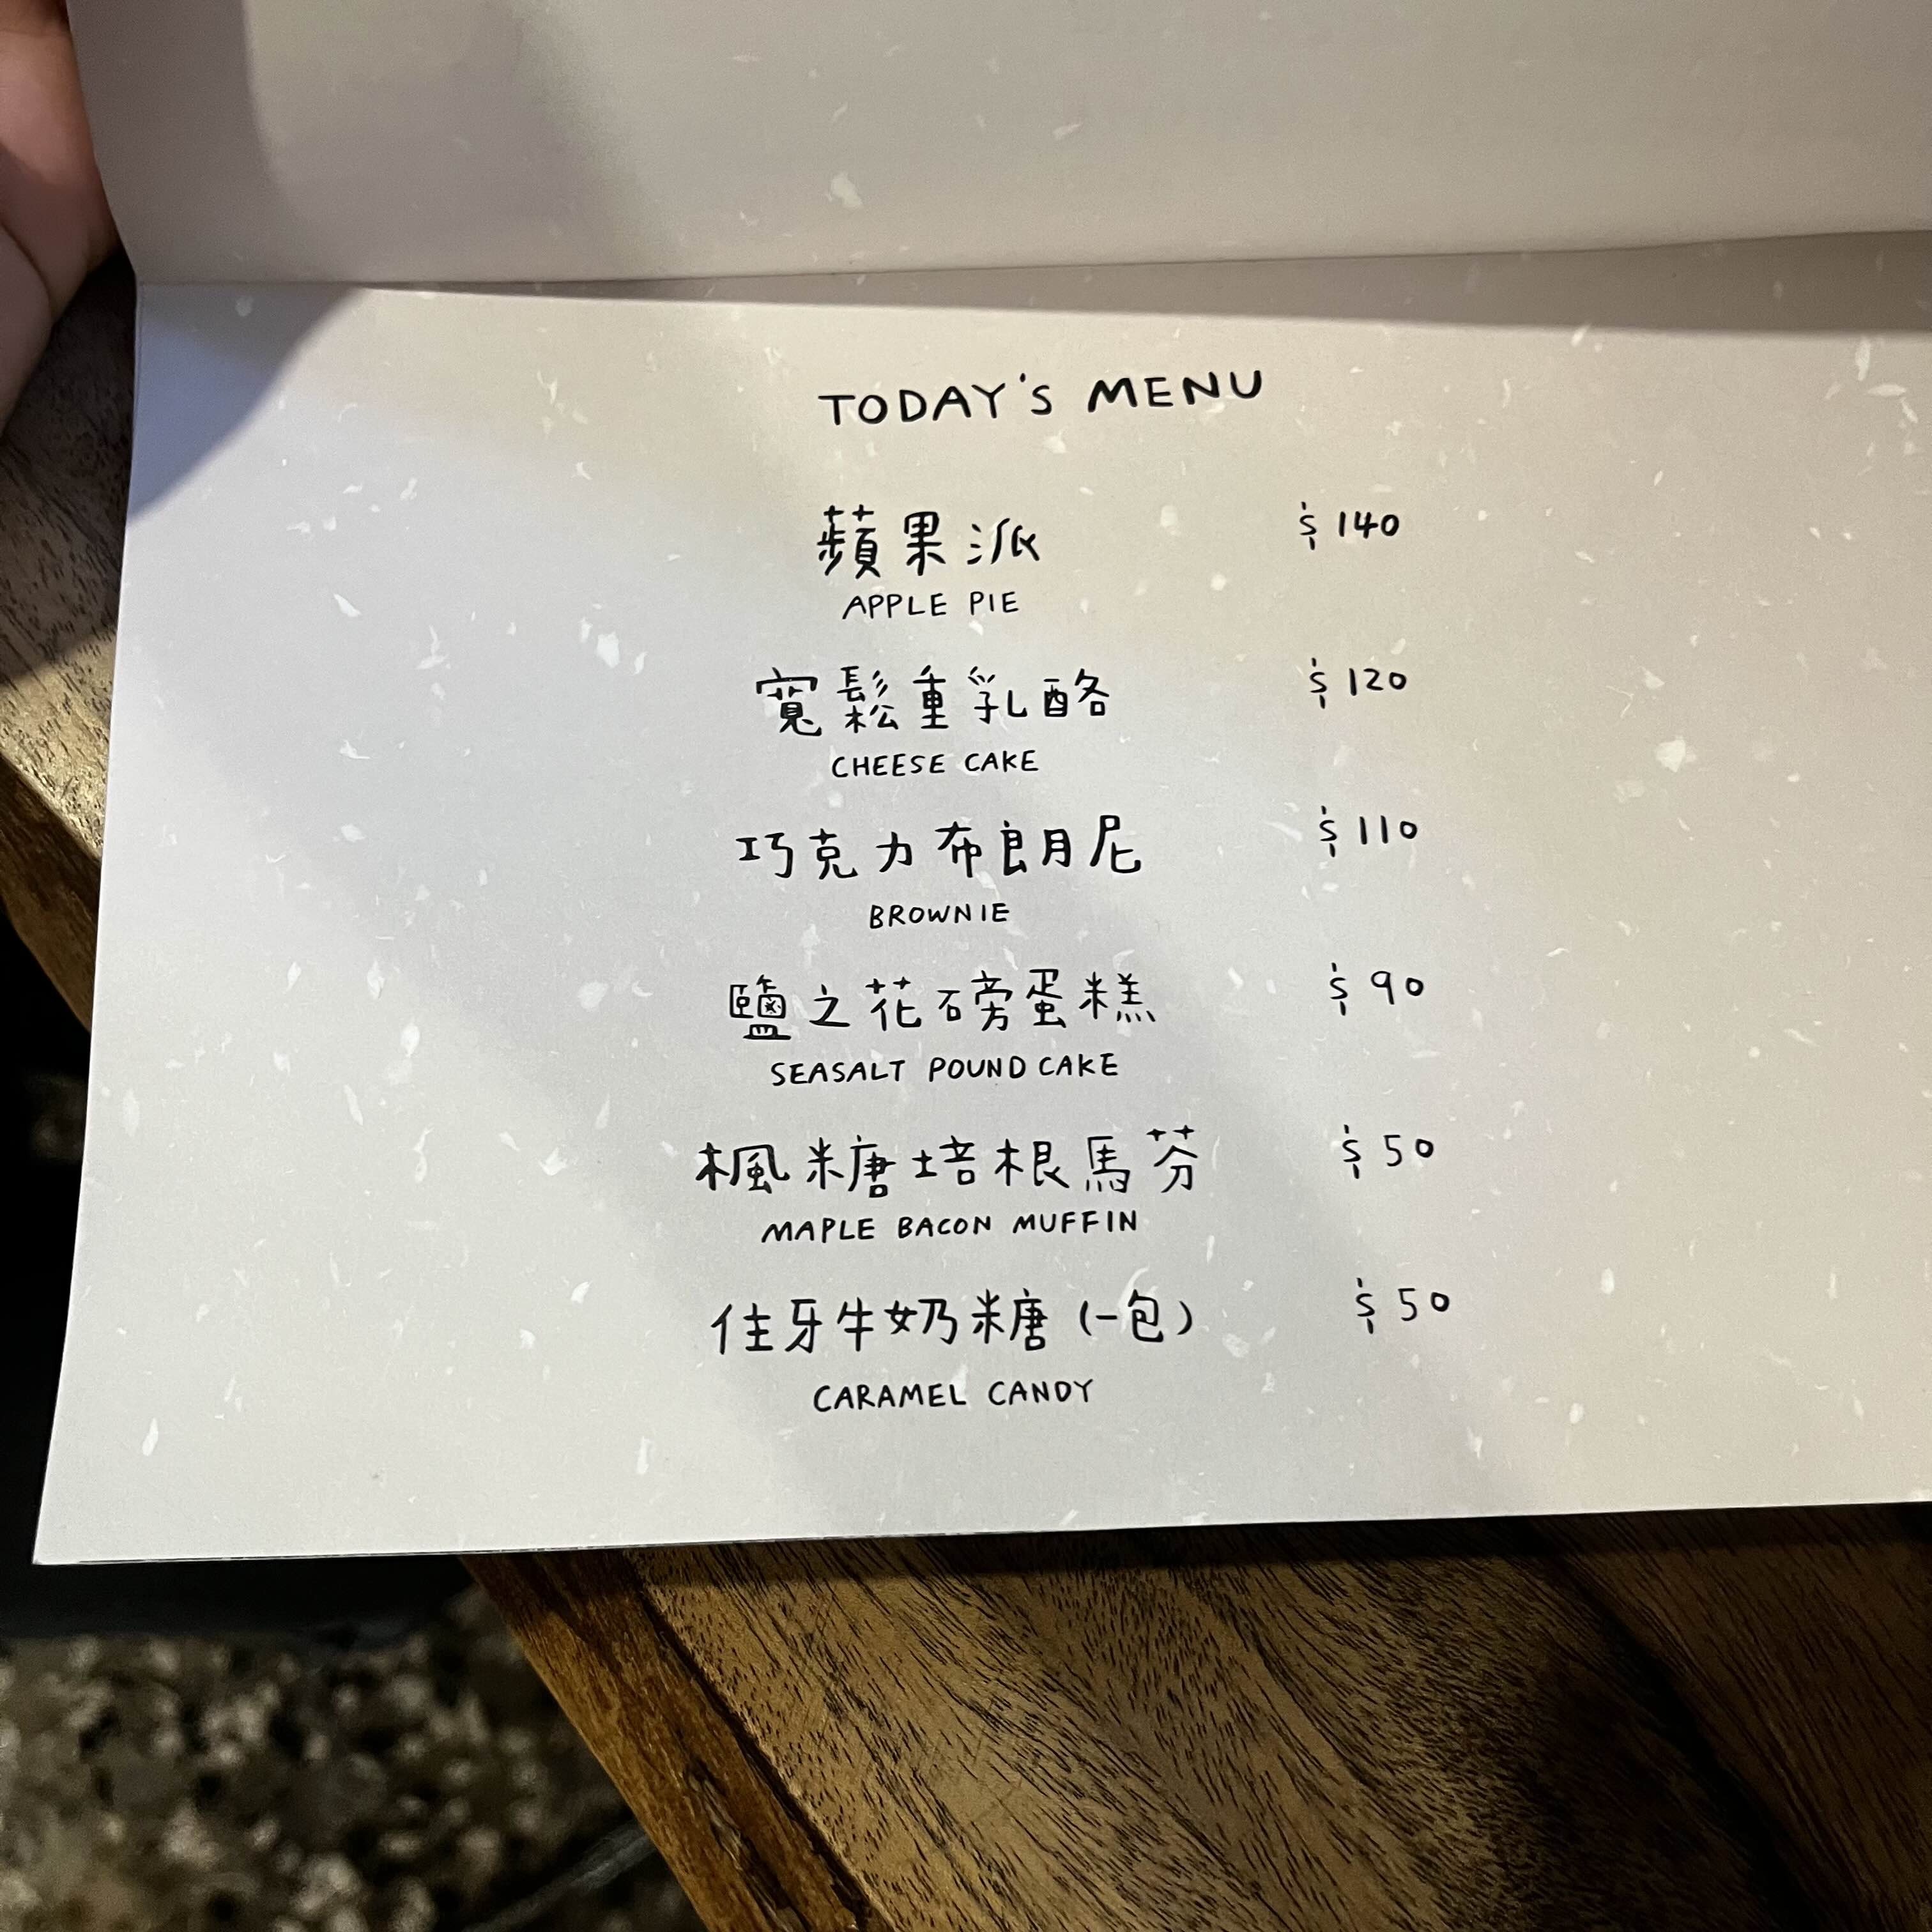 TODAY'S MENU
蘋果派 $140
APPLE PIE
寬鬆重乳酪 $120
CHEESE CAKE
巧克力布朗尼 $110
BROWNIE
鹽之花磅蛋糕 $90
SEASALT POUND CAKE
楓糖培根馬芬 $50
MAPLE BACON MUFFIN
住牙牛奶糖(一包) $50
CARAMEL CANDY